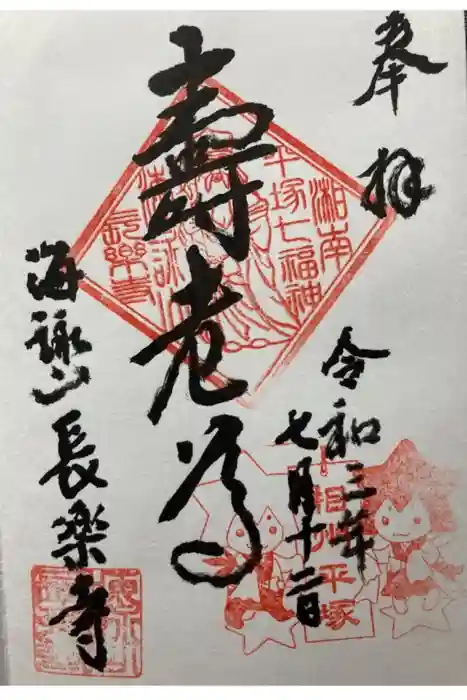 奉拝
令和三年
七月十二日
寿老尊
海詠山長楽寺
湘南
平塚七福神
長樂寺
相州平塚